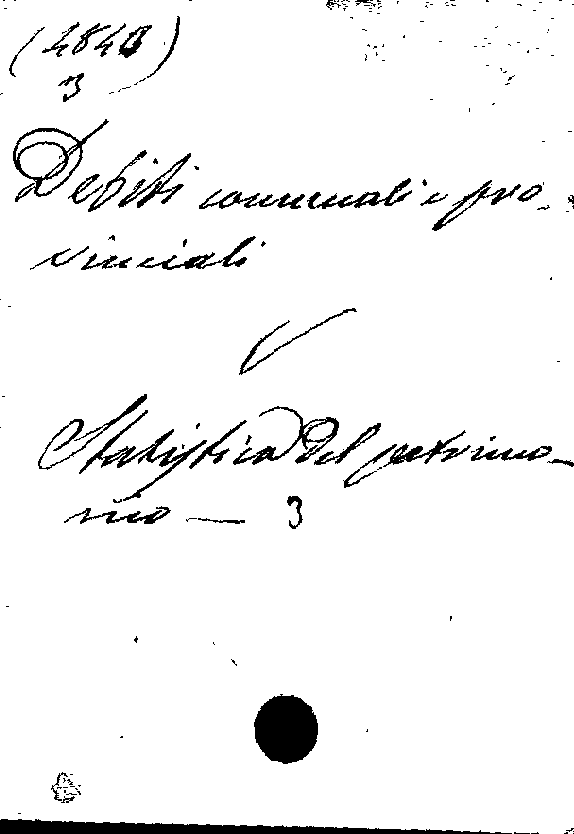 (4843)
3
Debiti comunali e pro-
vinciali
V
Statistica del patrimo-
nio — 3